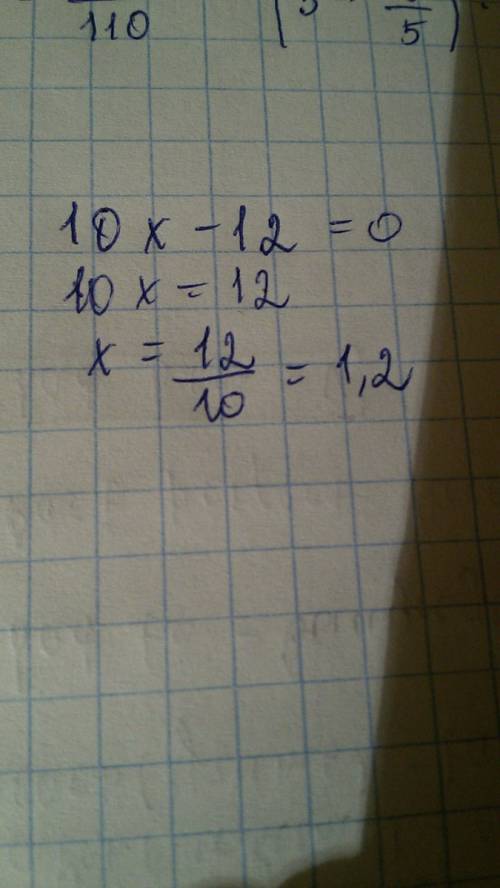 110 5
10x - 12 = 0
10x = 12
x = 12/10 = 1,2